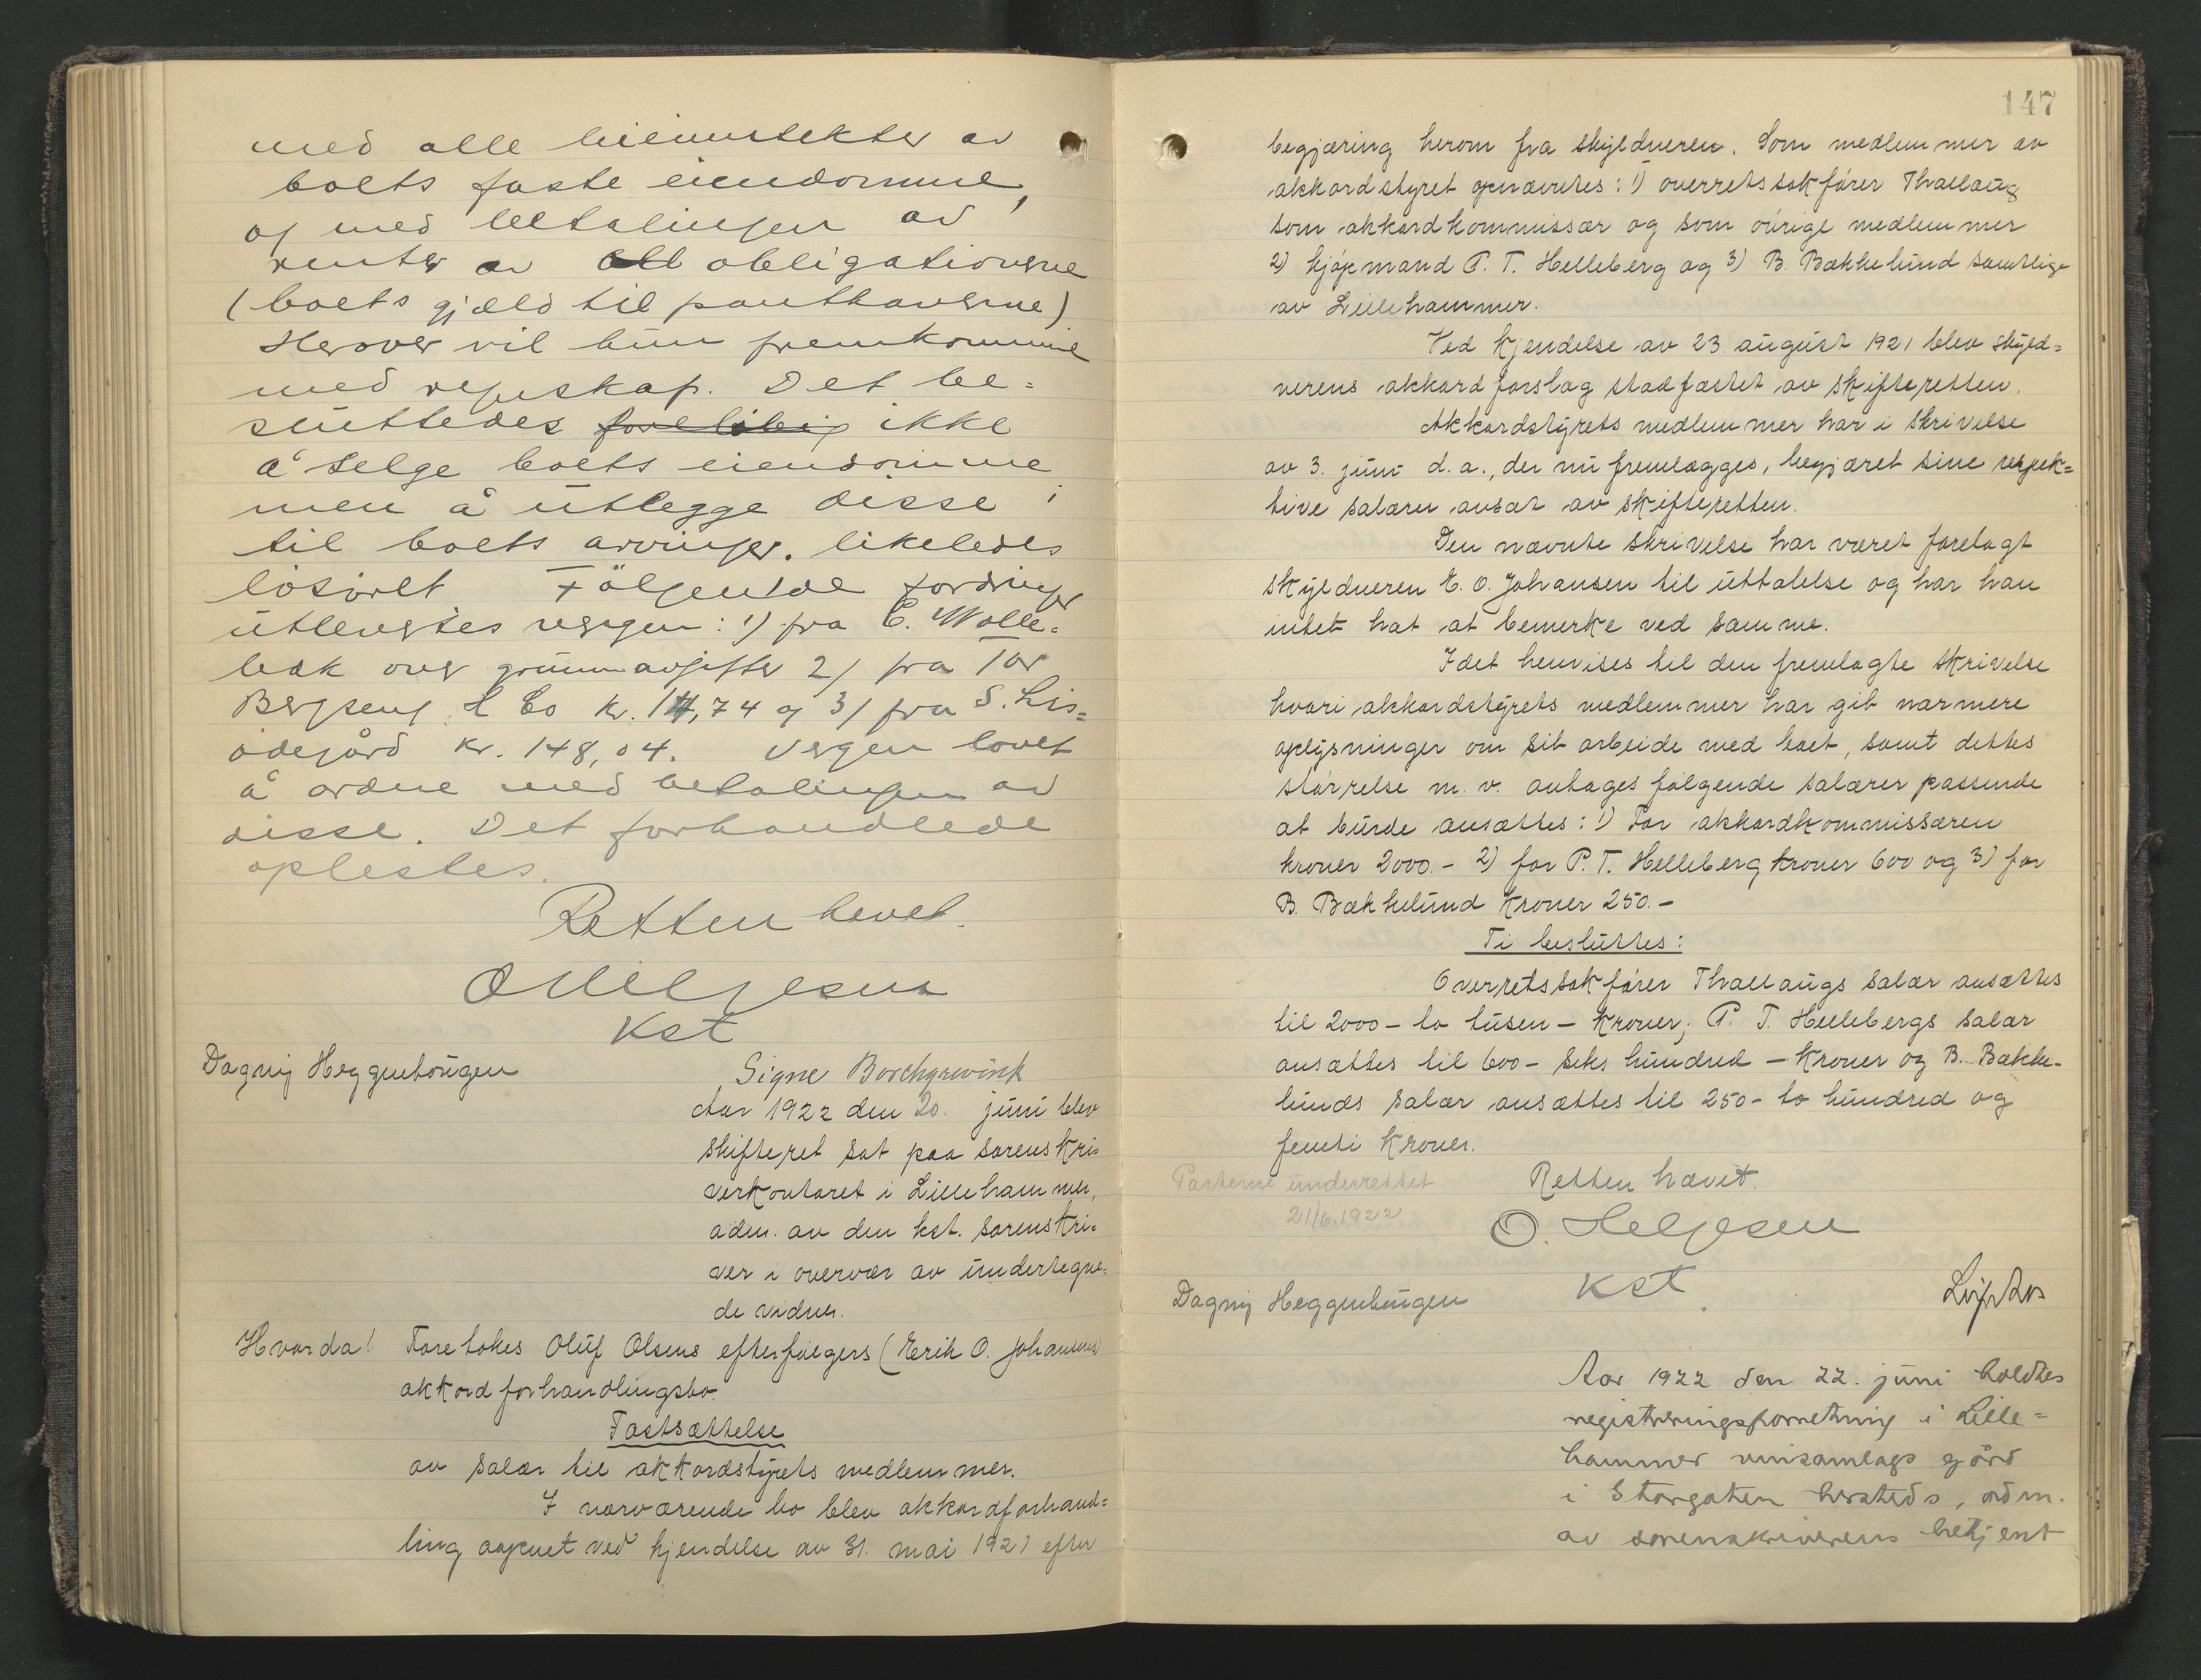 med alle leieinntekter av
boets faste eiendomme,
og med betalingen av
renter av obligationerne
(boets gjæld til panthaverne)
Herover vil hun fremkomme
med regnskap. Det be=
sluttedes foreløbig ikke
å selge boets eiendomme
men å utlegge disse
til boets arvinger. likeledes
løsøret Følgende fordringer
utlevertes vergen: 1) fra C. Molle=
bæk over grunnavgifter 2) fra Tor
Bergseng & Co kr. 14,74 og 3) fra S. Lis=
ødegård kr. 148,04. Vergen lovet
å ordne med betalingen av
disse. Det forhandlede
oplestes.
Retten hevet.
O Helgesen
Kst
Dagny Heggenhougen
Signe Borchgrevink
Aar 1922 den 20. juni blev
skifteret sat paa sorenskri=
verkontoret i Lillehammer,
adm. av den kst. sorenskri=
ver i overvær av undertegne=
de vidner.
Hvorda! Foretokes Oluf Olsens efterfølgers (Erik O. Johansens)
akkordforhandlingsbo.
Fastsættelse
av salær til akkordstyrets medlemmer.
I nærværende bo blev akkordforhand=
ling aapnet ved kjendelse av 31. mai 1921 efter
147
begjæring herom fra skyldneren. Som medlemmer av
akkordstyret opnævntes: 1) overretssakfører Thallaug
som akkordkommissær og som øvrige medlemmer
2) kjøpmand P. T. Helleberg og 3) B. Bækkelund samtlige
av Lillehammer.
Ved kjendelse av 23. august 1921 blev skyld=
nerens akkordforslag stadfæstet av skifteretten.
Akkordstyrets medlemmer har i skrivelse
av 3. juni d. a., der nu fremlægges, begjæret sine respek=
tive salærer ansat av skifteretten.
Den nævnte skrivelse har været forelagt
skyldneren E. O. Johansen til uttalelse og har han
intet hat at bemerke ved samme.
Idet henvises til den fremlagte skrivelse
hvori akkordstyrets medlemmer har git nærmere
oplysninger om sit arbeide med boet, samt dettes
størrelse m. v. antages følgende salærer passende
at burde ansættes: 1) For akkordkommissæren
kroner 2000.- 2) for P. T. Helleberg kroner 600 og 3) for
B. Bækkelund kroner 250.-
Ti besluttes:
Overretssakfører Thallaugs salær ansættes
til 2000 - to tusen - kroner; P. T. Hellebergs salær
ansættes til 600 - seks hundred - kroner og B. Bække=
lunds salær ansættes til 250 - to hundred og
femti kroner.
Parterne underrettet
21/6.1922
Retten hævet.
O. Helgesen
Kst.
Dagny Heggenhougen
Aar 1922 den 22. juni holdtes
registreringsforretning i Lille=
hammer vinsamlags gård
i Storgaten hersteds, adm.
av sorenskriverens betjent